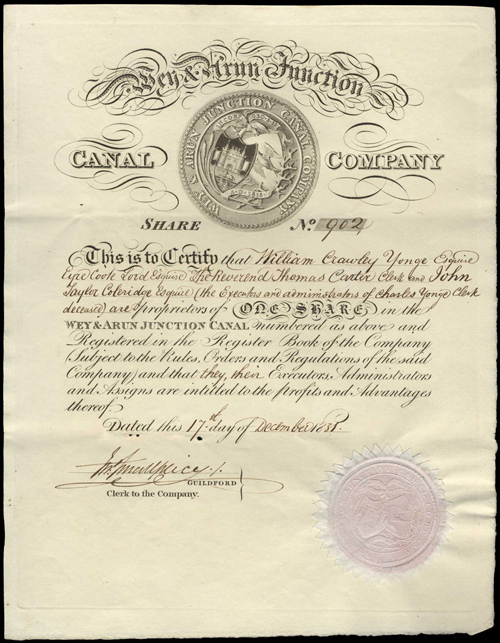 Wey & Arun Junction
CANAL COMPANY
WEY & ARUN JUNCTION CANAL COMPANY
SHARE No. 902
This is to Certify that William Crawley Yonge Esquire
Eyre Coote Lord Esquire The Reverend Thomas Carter Clerk and John
Taylor Coleridge Esquire (the Executors and administrators of Charles Yonge Clerk
deceased) are proprietors of ONE SHARE in the
WEY & ARUN JUNCTION CANAL numbered as above and
Registered in the Register Book of the Company
(Subject to the Rules, Orders and Regulations of the said
Company) and that they, their Executors, Administrators
and Assigns are intitled to the profits and Advantages
thereof.
Dated this 17th day of December
GUILDFORD
Clerk to the Company.